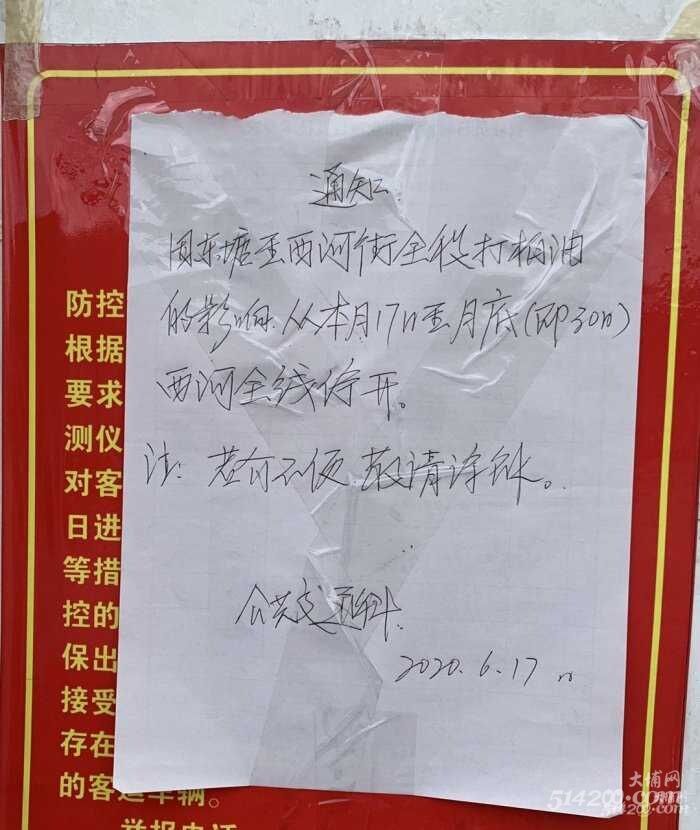 通知
因东塘至西河街全段打柏油
的影响.从本月17日至月底(即30日)
西河全线停开。
注:若有不便 敬请谅解。
公共交通科
2020.6.17日
防控
根据
要求
测仪
对客
日进
等措
控的
保出
接受
存在
的客运车辆。
举报电话
大埔网
514200.com